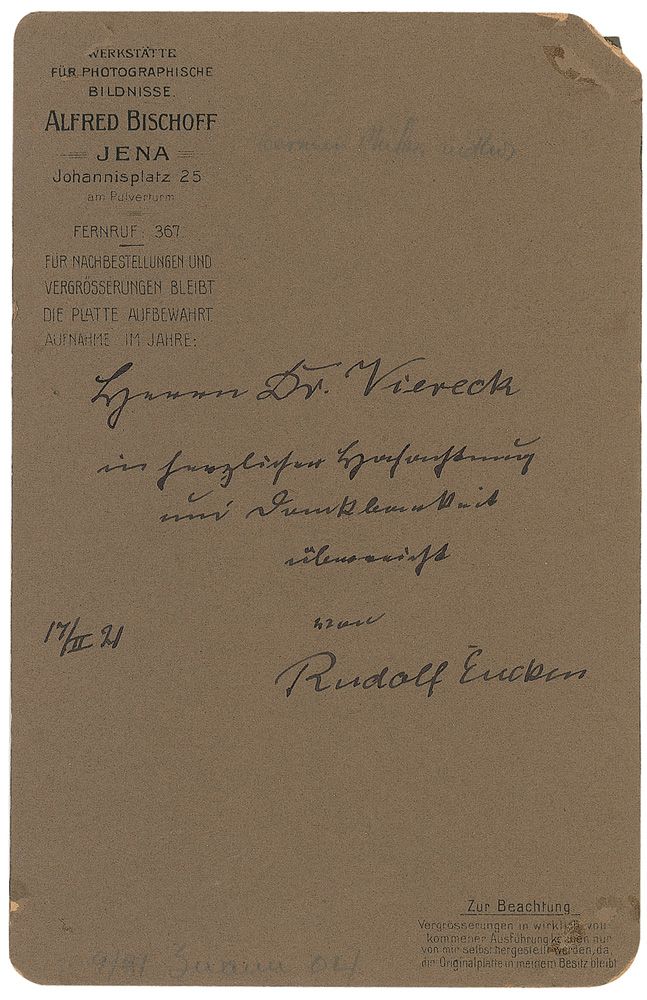 WERKSTÄTTE
FÜR PHOTOGRAPHISCHE
BILDNISSE.
ALFRED BISCHOFF
JENA
Johannisplatz 25
am Pulverturm
FERNRUF: 367
FÜR NACHBESTELLUNGEN UND
VERGRÖSSERUNGEN BLEIBT
DIE PLATTE AUFBEWAHRT.
AUFNAHME IM JAHRE:
Herrn Dr. Viereck
in herzlicher Hochachtung
und Dankbarkeit
überreicht
von
17/II 21
Rudolf Eucken
Zur Beachtung
Vergrösserungen in wirklich voll-
kommener Ausführung können nur
von mir selbst hergestellt werden, da
die Originalplatte in meinem Besitz bleibt